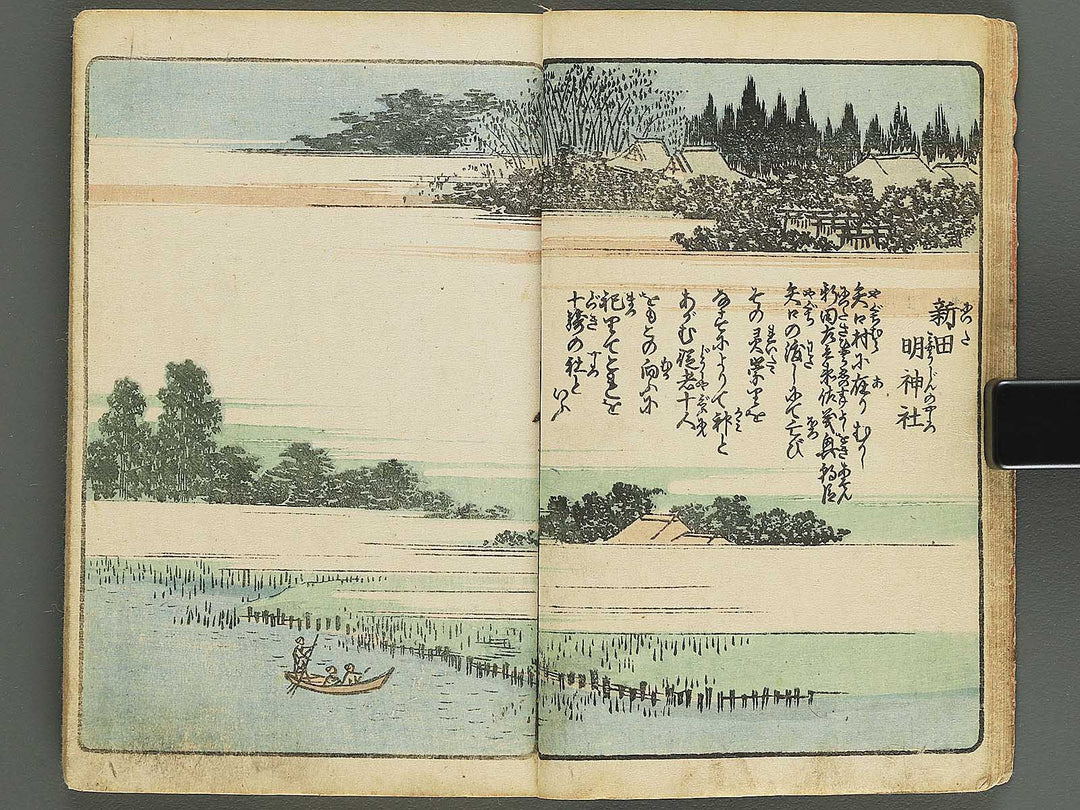 新田
明神社
矢口村に在りむかし
新田左兵衛佐義興朝臣
矢口の渡しにて亡び
その灵祟りを
なすによりて神と
あがむ従者十人
をもとの向ふに
祀りてこれを
十騎の社と
いふ